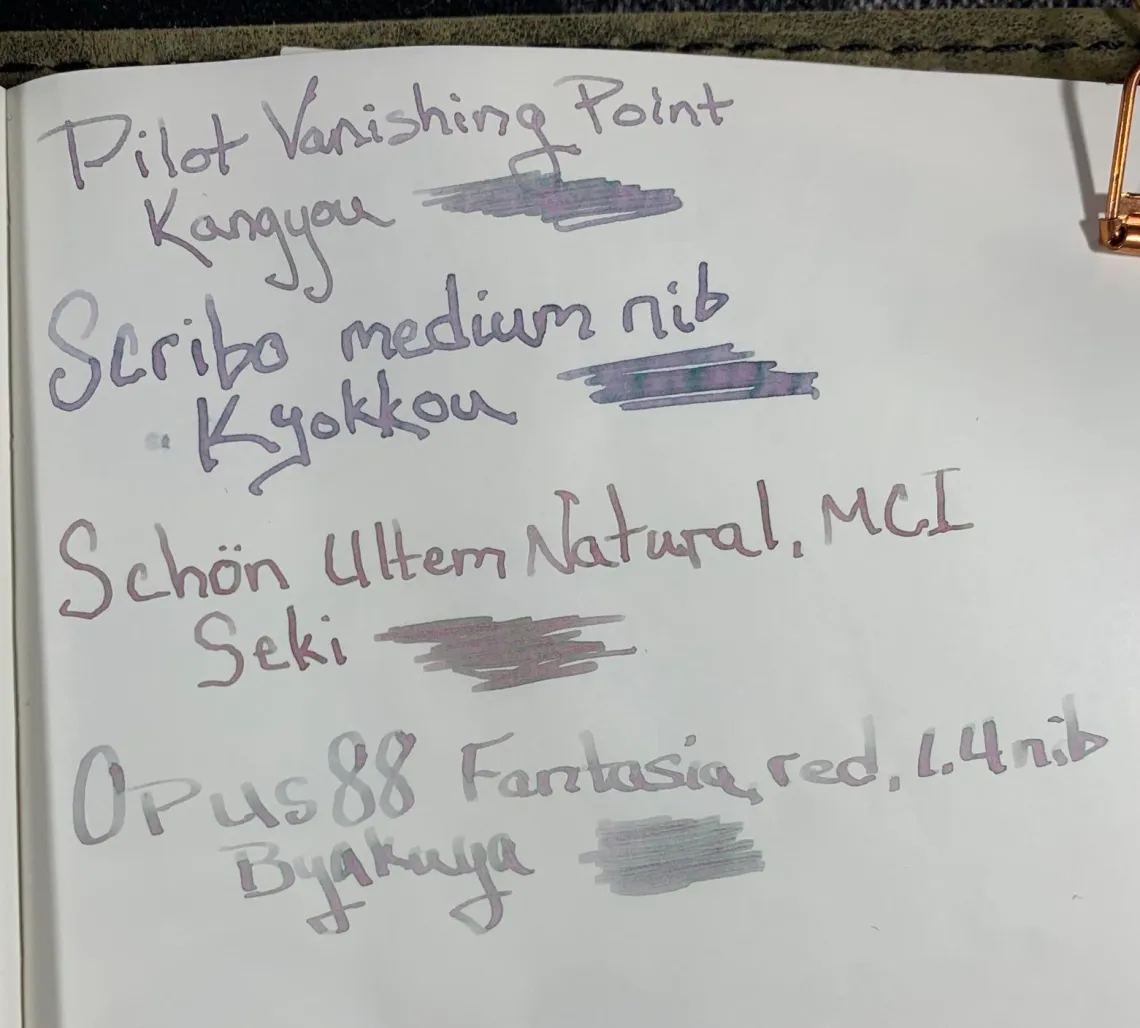 Pilot Vanishing Point
Kangyou
Scribo medium nib
Kyokkou
Schön Ultem Natural, MCI
Seki
Opus 88 Fantasia, red, 1.4 nib
Byakuya